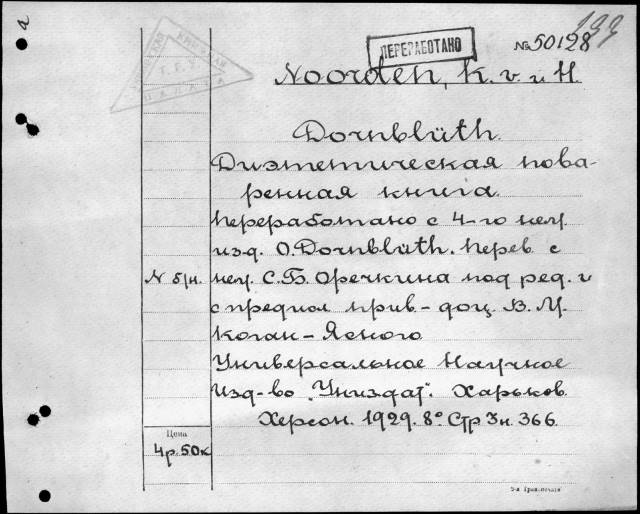 а
КНИЖНАЯ
ПАЛАТА
ПЕРЕРАБОТАНО
№ 50128
133
Noorden, K. v. и H.
Dornblüth.
Диэтетическая пова-
ренная книга.
Переработано с 4-го нем.
изд. O. Dornblüth. Перев. с
N б/н.
нем. С. Б. Оречкина под ред. и
с предисл. прив-доц. В. М.
Коган-Ясного
Универсальное Научное
Изд-во "Униздат". Харьков.
Херсон. 1929. 8° Стр. Зн. 366.
Цена
4р. 50к